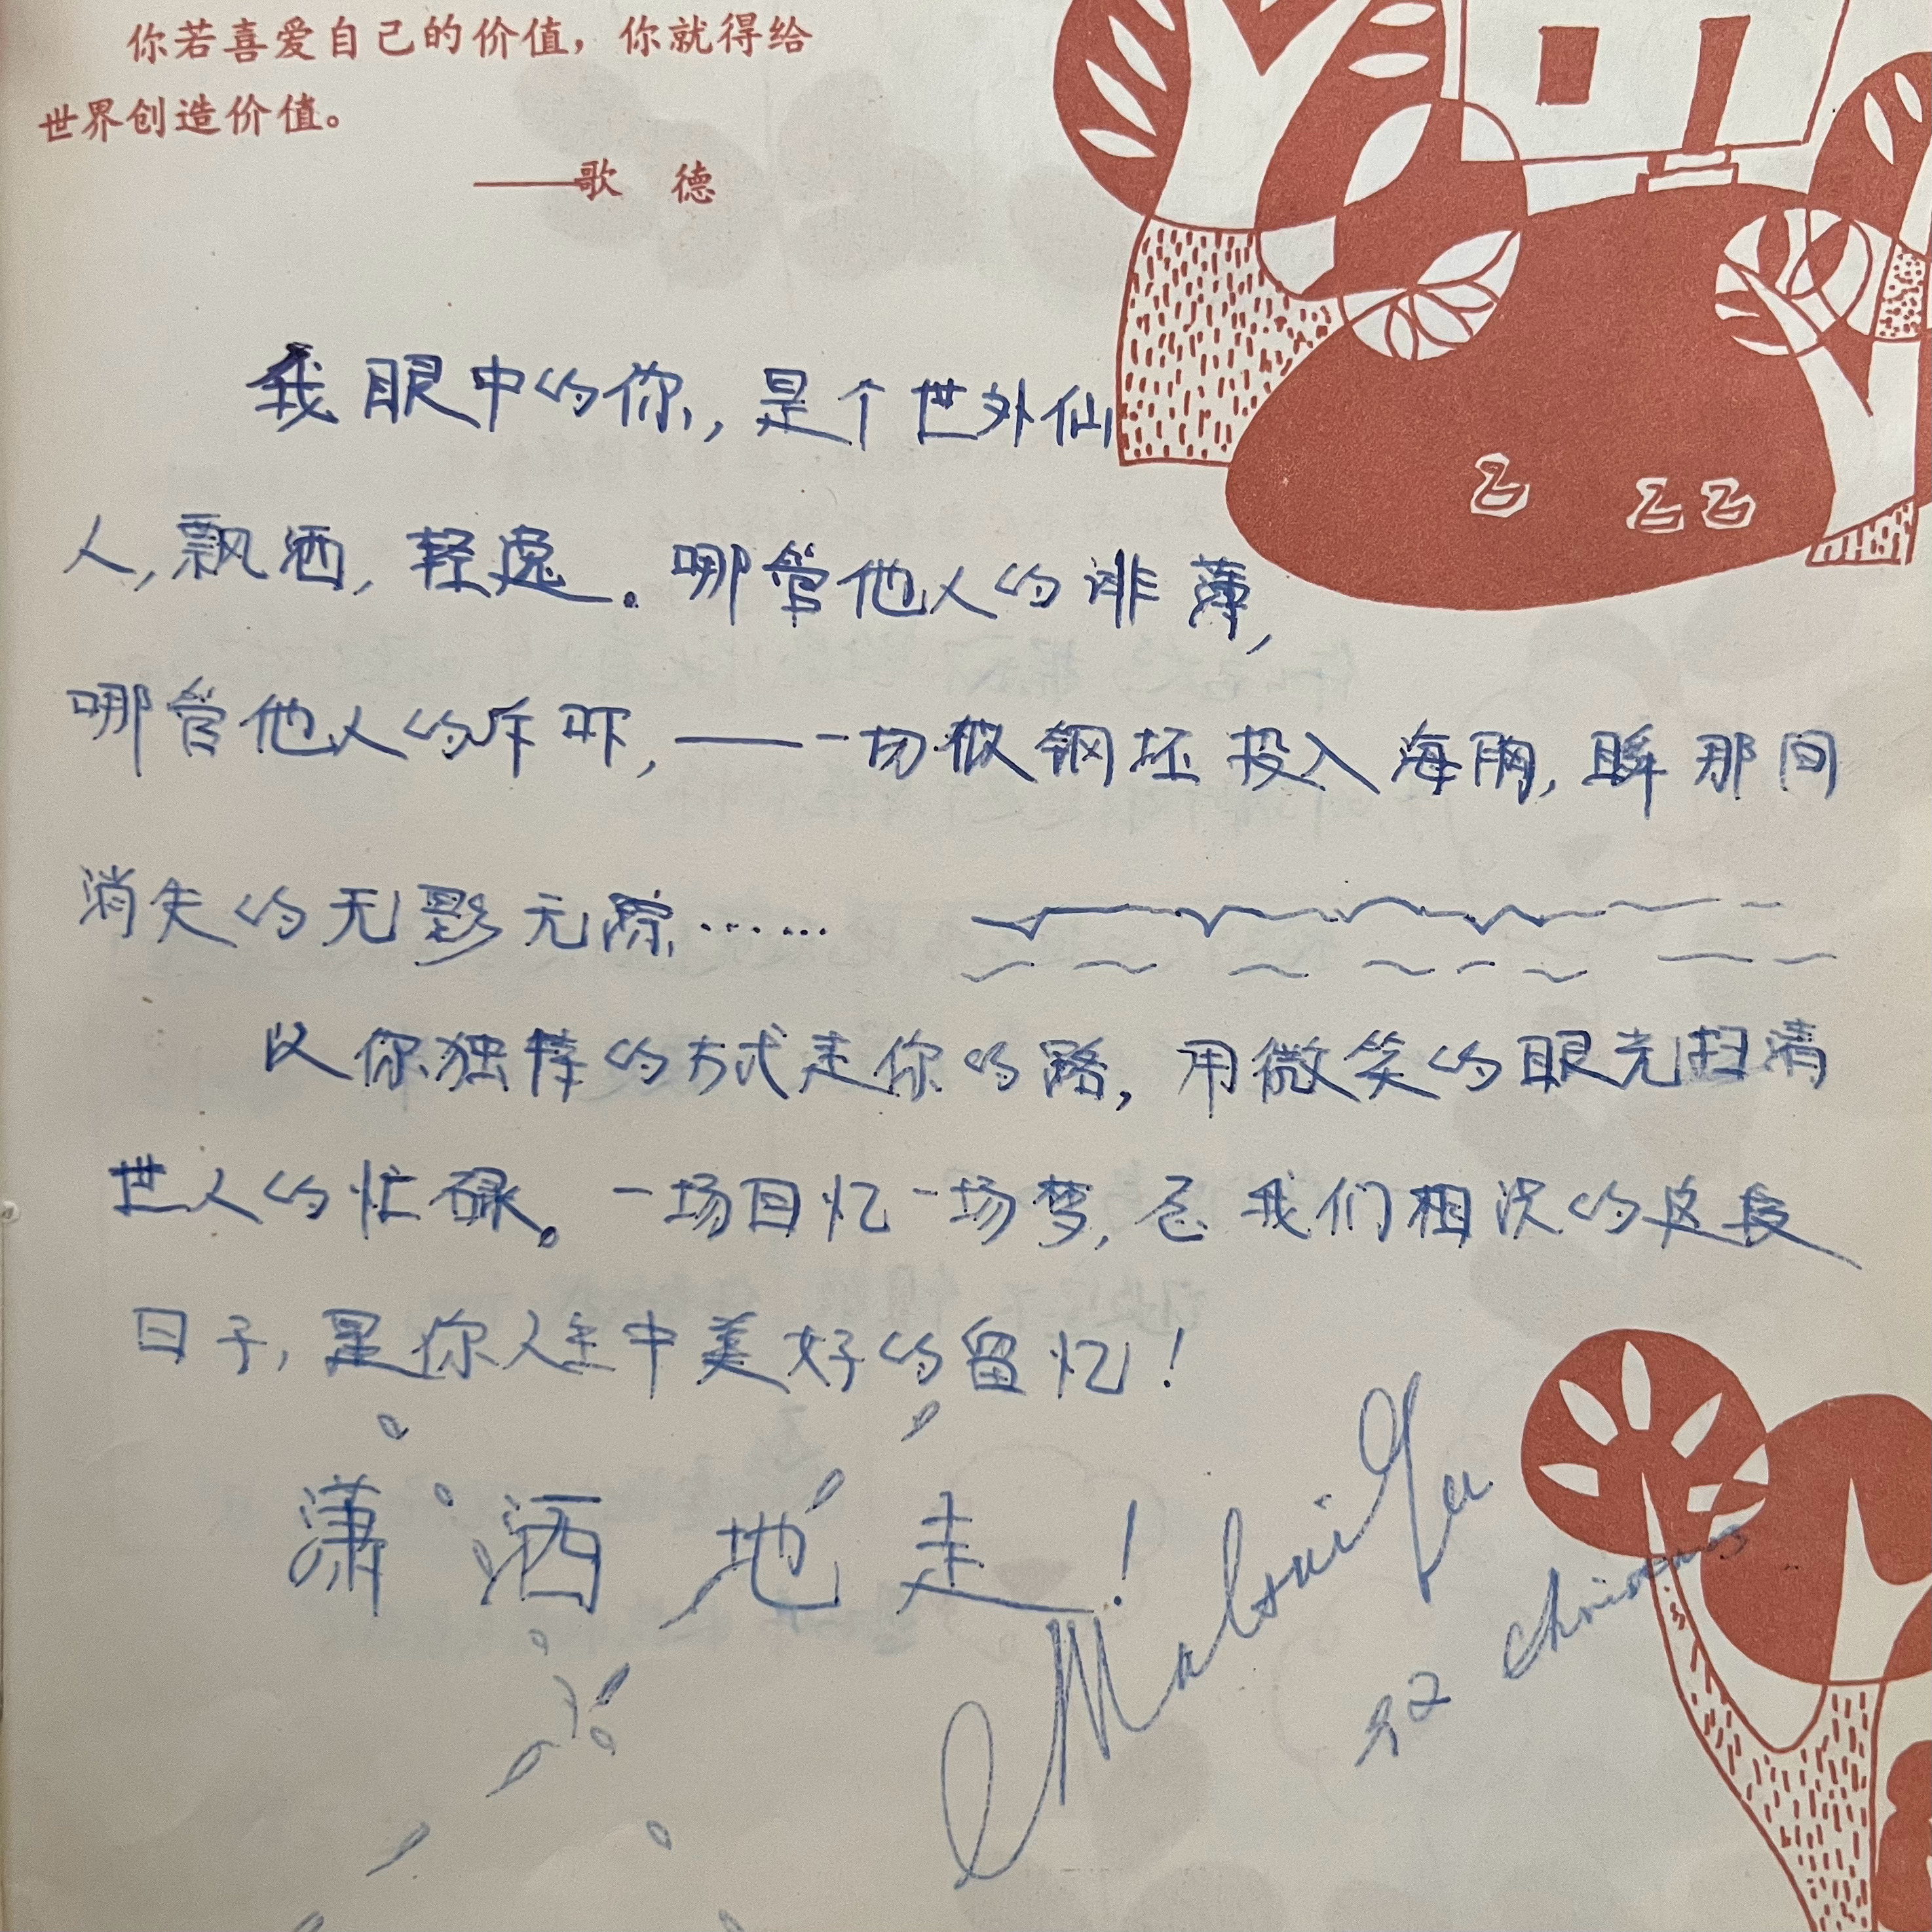 你若喜爱自己的价值，你就得给
世界创造价值。
——歌 德
我眼中的你，是个世外仙
人，飘洒，轻逸。哪管他人的诽薄，
哪管他人的斥吓，——一切做钢坯投入海胸，眸那间
消失的无影无踪……
以你独特的方式走你的路，用微笑的眼光扫清
世人的忙碌。一场回忆一场梦，愿我们相识的这段
日子，是你人生中美好的留忆！
潇洒地走！
92 Christmas